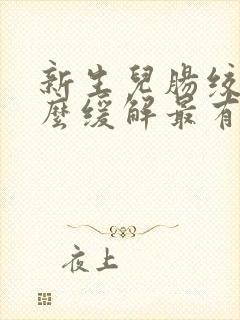 新生兒腸絞
麼緩解最有
夜上